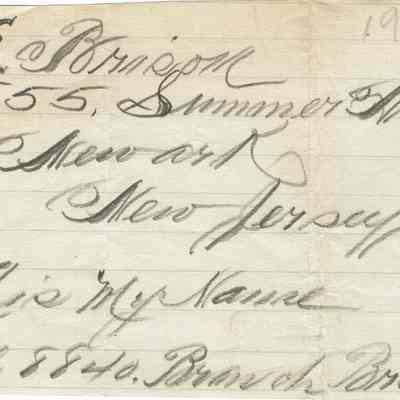 19
Brison
55, Summer
Newark
New Jersey
is My Name
8840. Branch Br